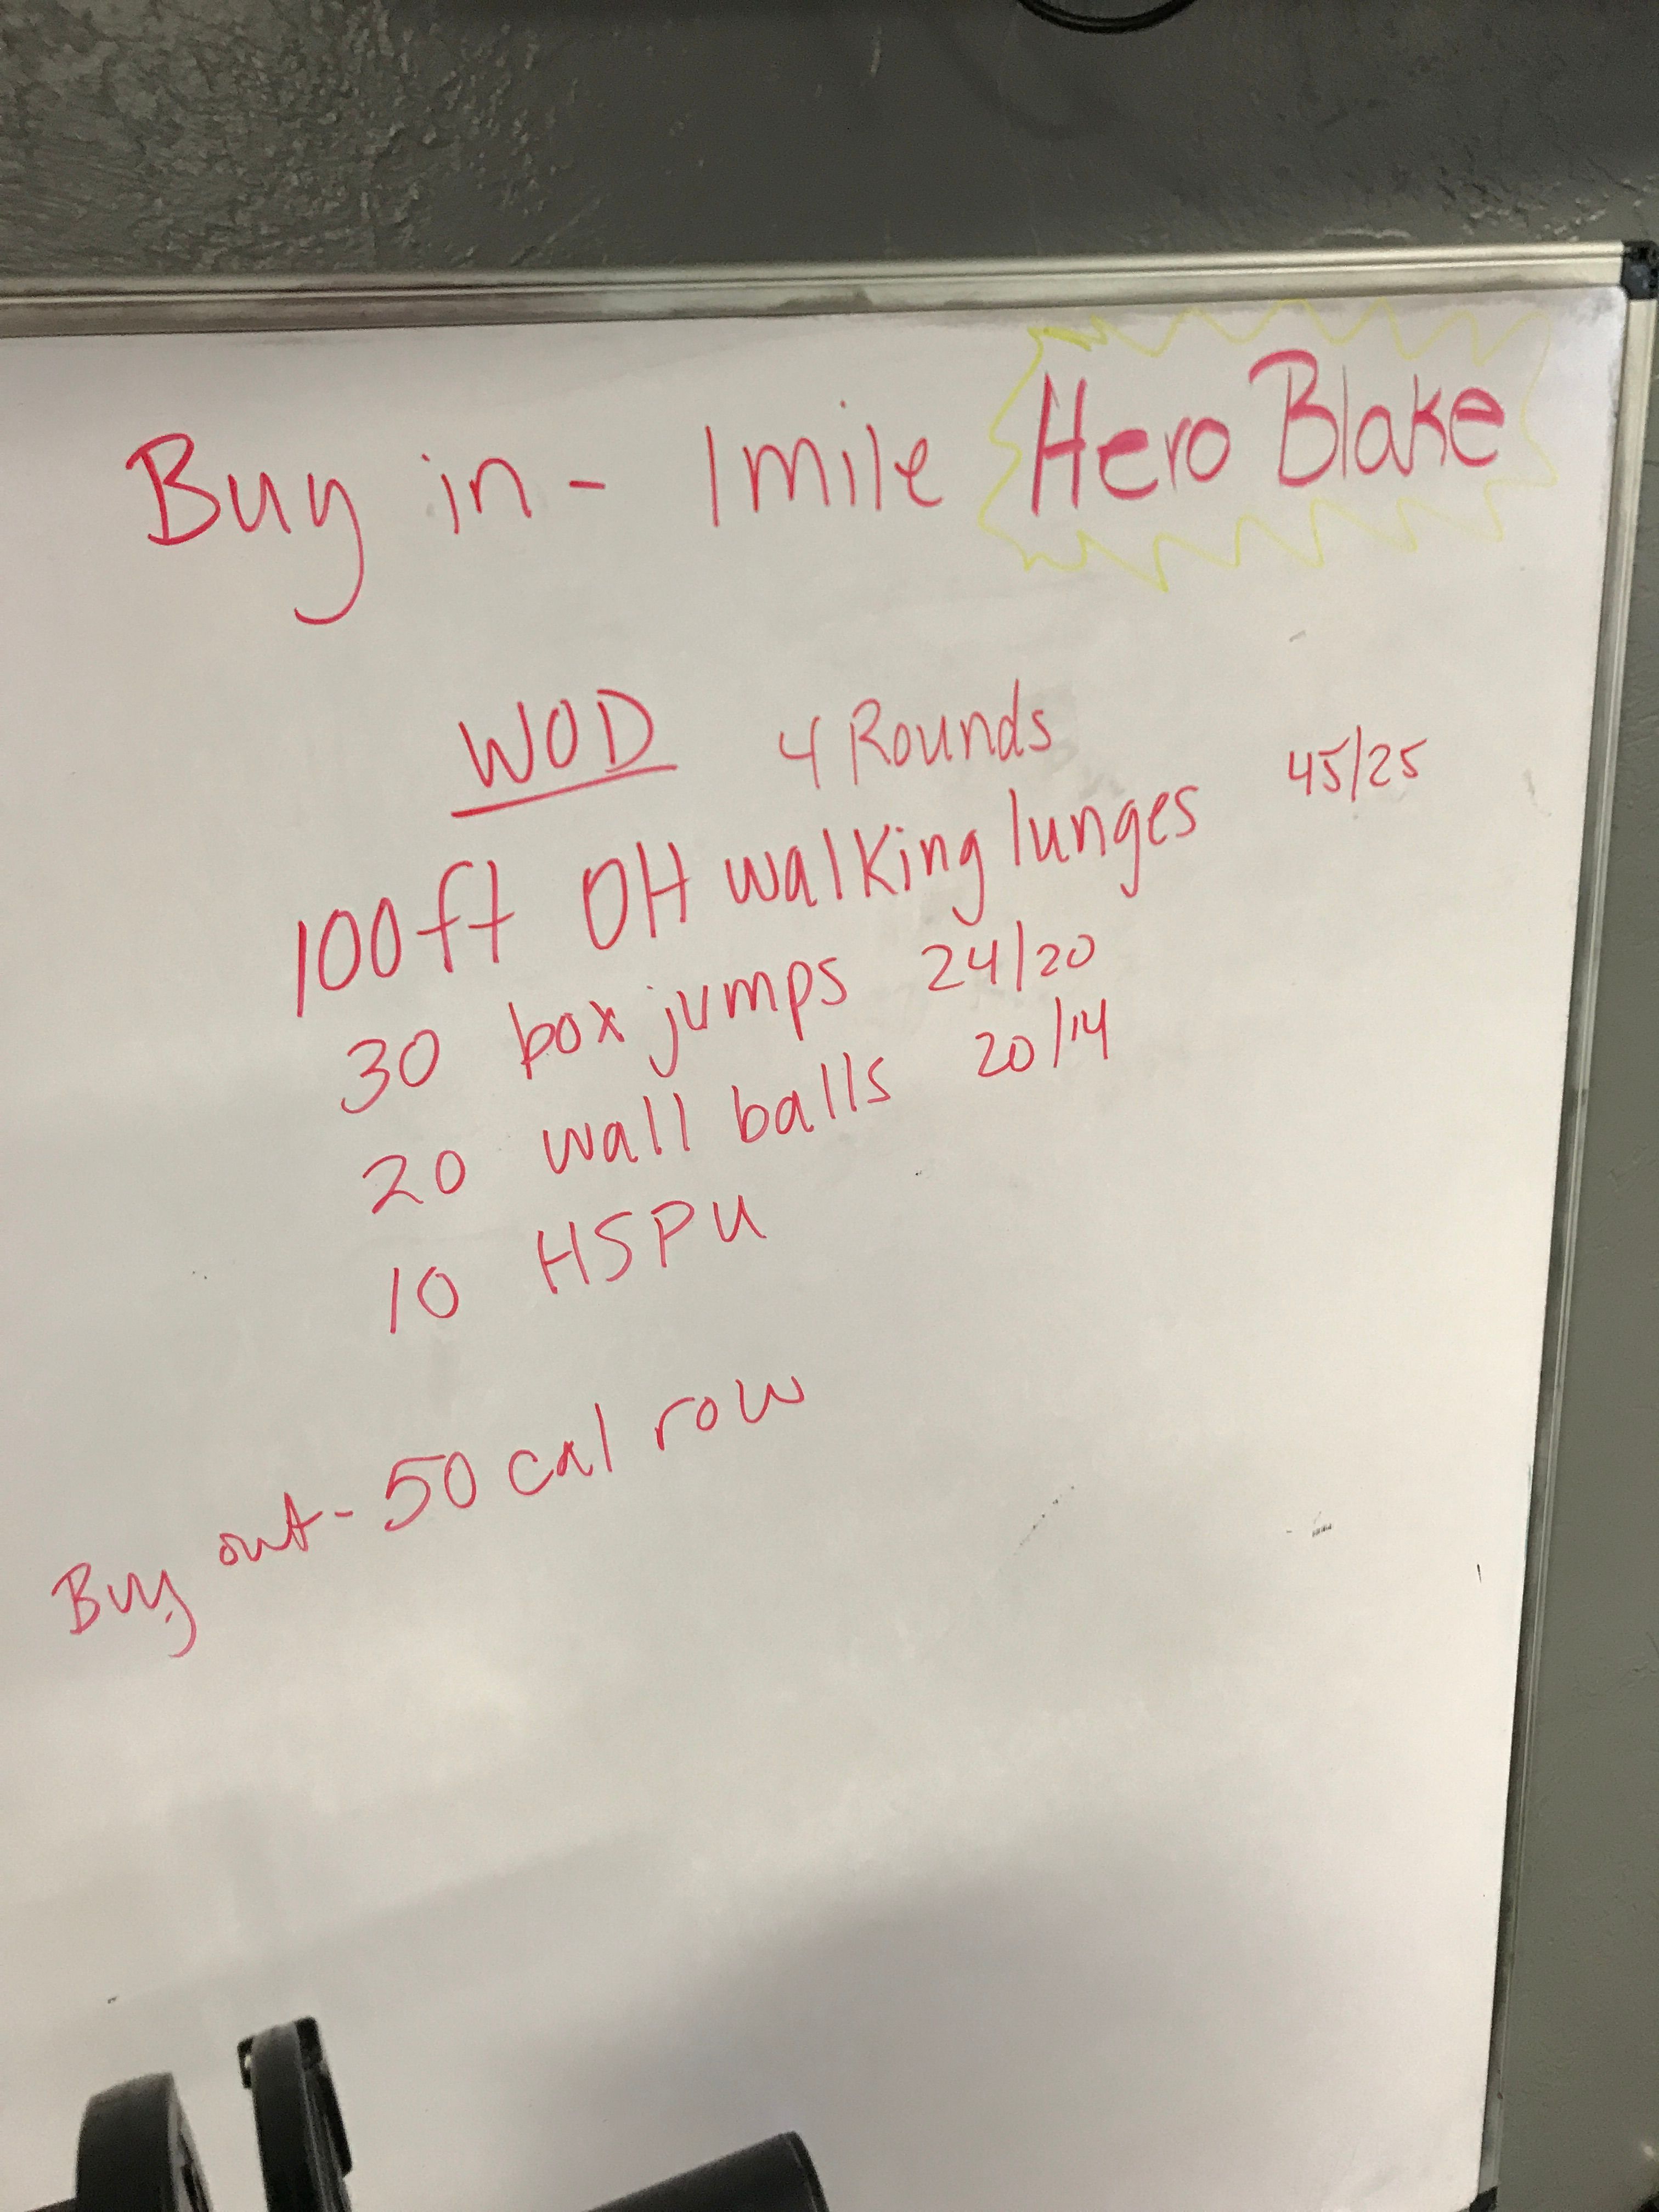 Buy in - 1 mile Hero Blake
WOD 4 Rounds
100ft OH walking lunges 45/25
30 box jumps 24/20
20 wall balls 20/14
10 HSPU
Buy out - 50 cal row